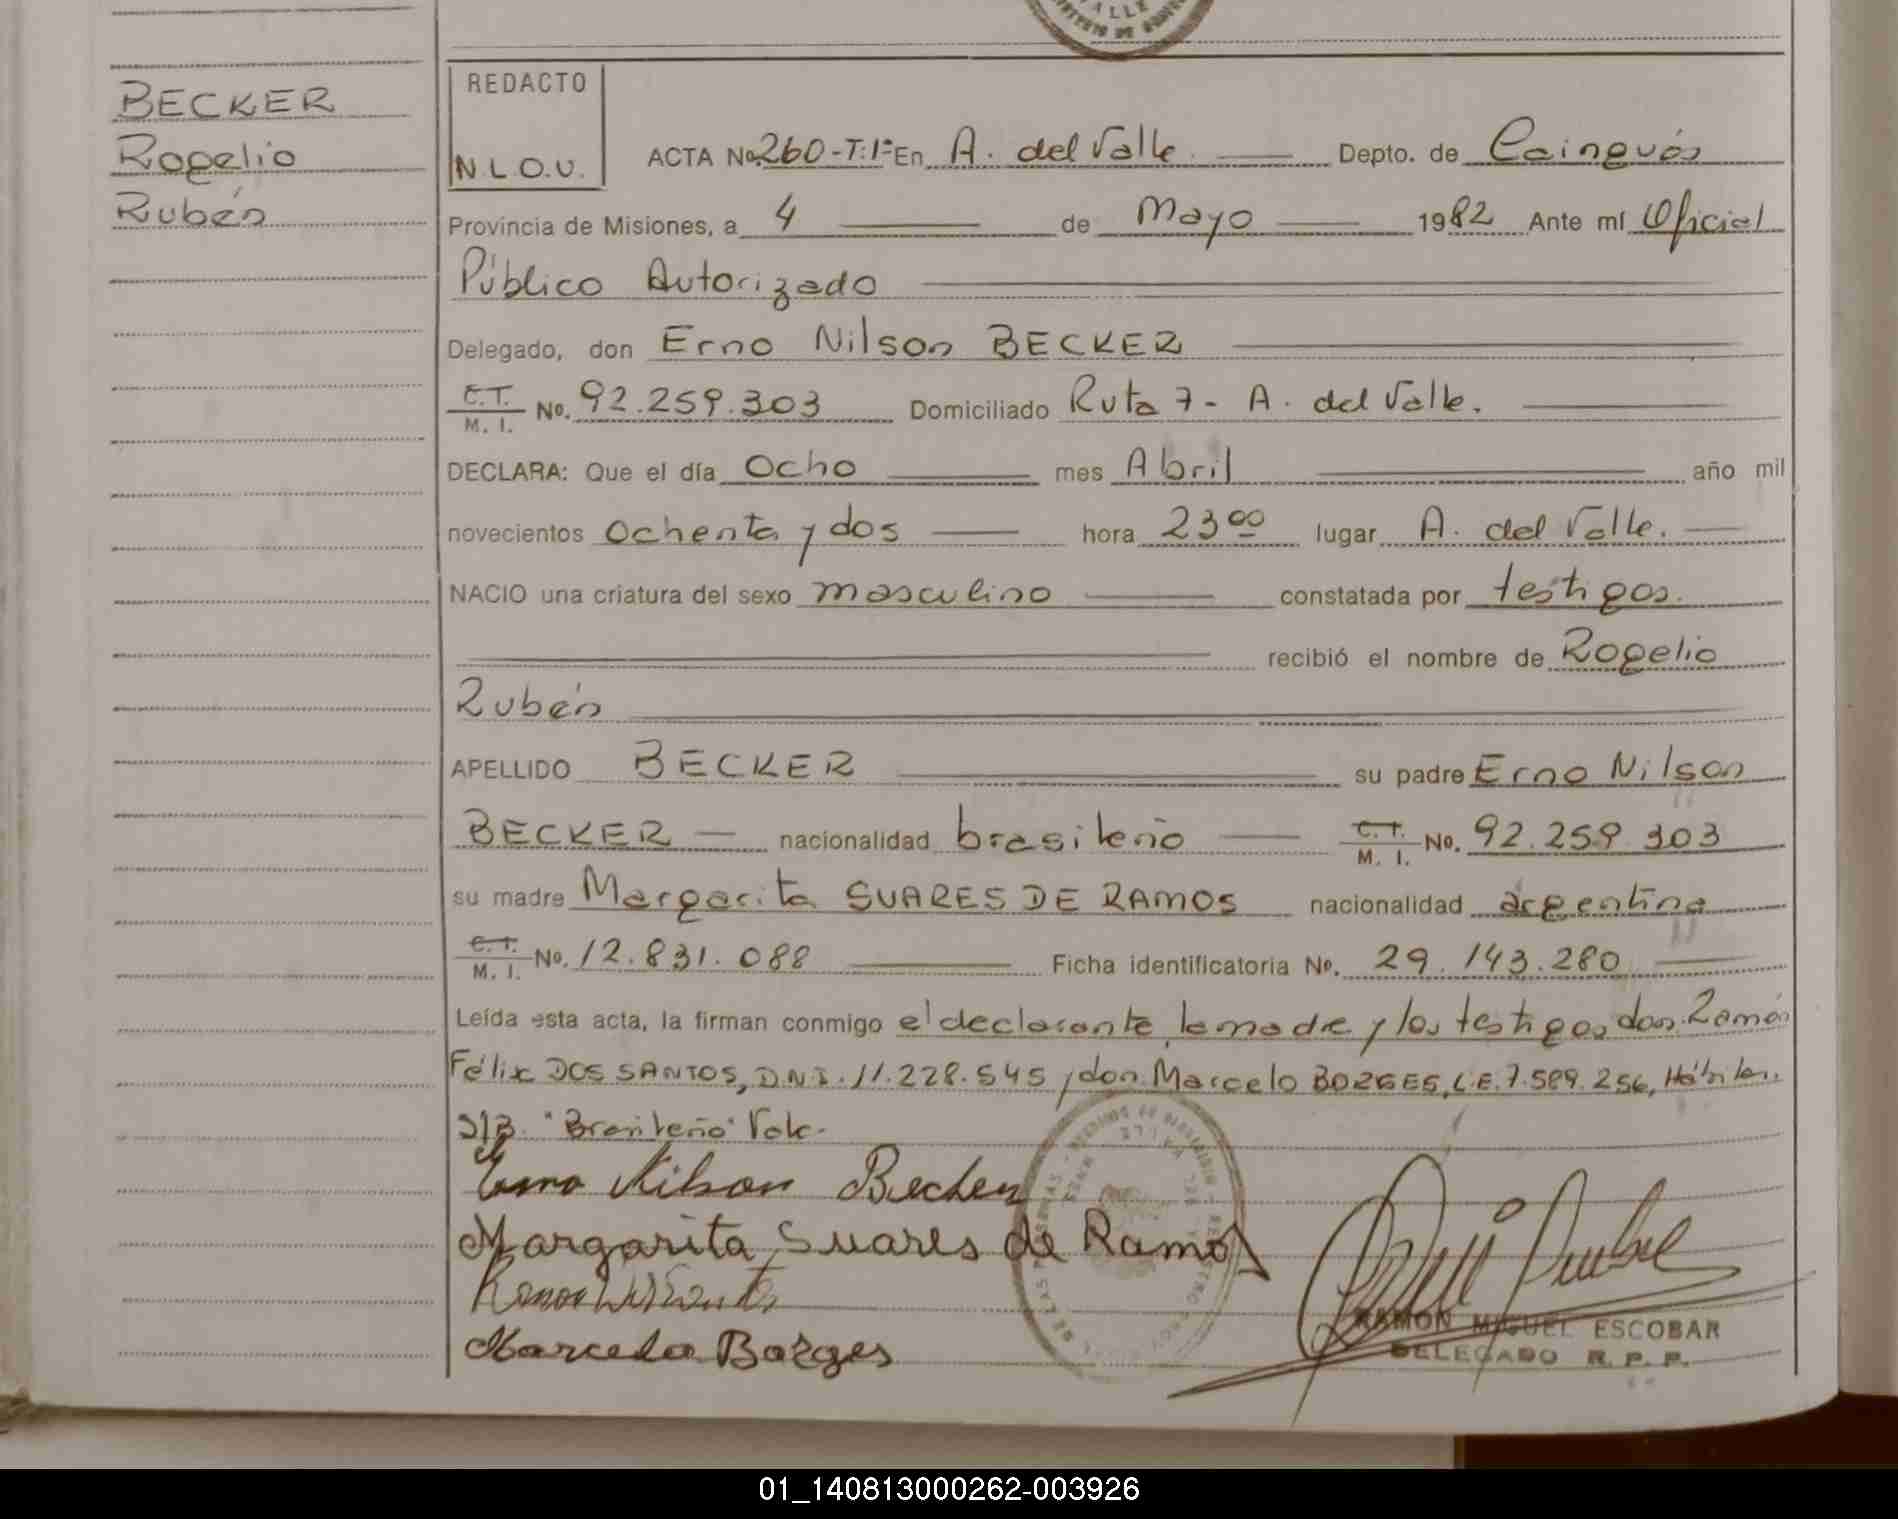 VALLE
BECKER
Rogelio
Rubén
REDACTO
N.L.O.V.
ACTA No. 260-T:1º En A. del Valle Depto. de Cainguás
Provincia de Misiones, a 4 de Mayo 1982 Ante mí Oficial
Público Autorizado
Delegado, don Erno Nilson BECKER
C.T. M. I. No. 92.259.303 Domiciliado Ruta 7 - A. del Valle.
DECLARA: Que el día Ocho mes Abril año mil
novecientos Ochenta y dos hora 23 00 lugar A. del Valle.
NACIO una criatura del sexo masculino constatada por testigos.
recibió el nombre de Rogelio
Rubén
APELLIDO BECKER su padre Erno Nilson
BECKER nacionalidad brasileño C.T. M. I. No. 92.259.303
su madre Margarita SUARES DE RAMOS nacionalidad argentina
C.T. M. I. No. 12.831.088 Ficha identificatoria No. 29.143.280
Leída esta acta, la firman conmigo el declarante, la madre y los testigos don Ramón
Félix DOS SANTOS, D.N.I. 11.228.545 y don Marcelo BORGES, L.E. 7.589.256, Hábiles.
S/B. "Brasileño" Vale.
Erno Nilson Becker
Margarita Suares de Ramos
Marcelo Borges
RAMON MIGUEL ESCOBAR
DELEGADO R. P. P.
01_140813000262-003926